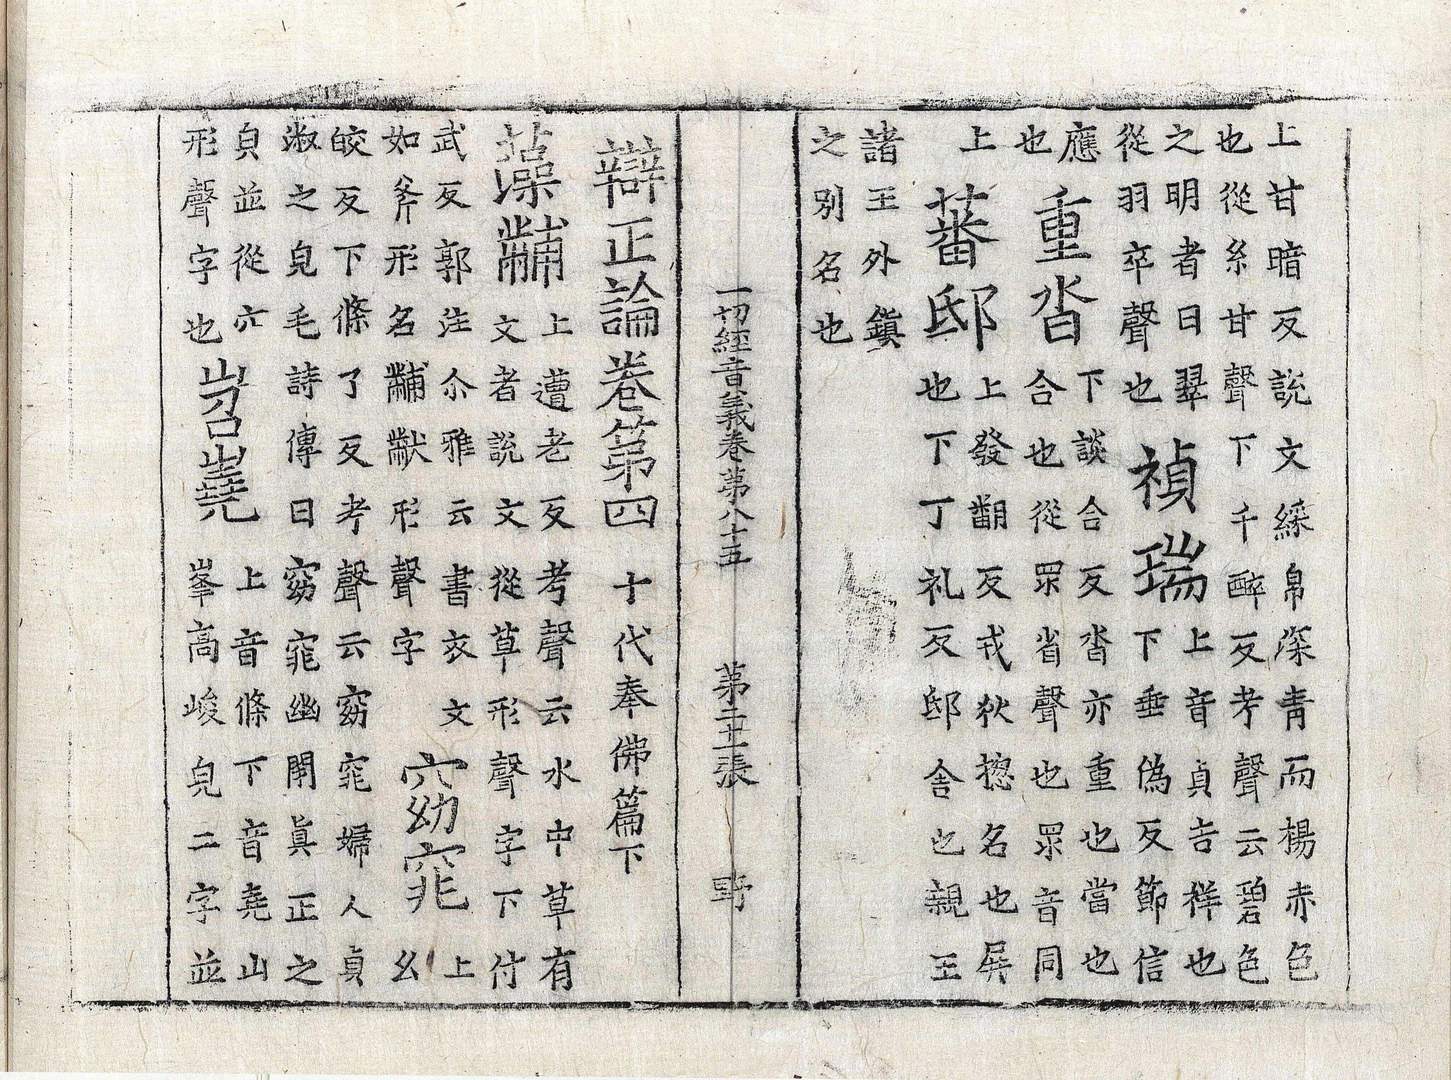 上甘暗反說文綵帛深青而楊赤色
也從糸甘聲下千醉反考聲云碧色
之明者曰翠
從羽卒聲也
禎瑞
上音貞吉祥也
下垂偽反節信
應
也
重沓
下談合反沓亦重也當也
合也從眾省聲也眾音同
上
蕃邸
上發翻反戎狄揔名也屏
也下丁礼反邸舍也親王
諸王外鎮
之別名也
一切經音義卷第八十五 第二十一張 野
辯正論卷第四 十代奉佛篇下
藻黼
上遭老反考聲云水中草有
文者說文從草形聲字下付
武反郭注尒雅云書衣文
如斧形名黼黻形聲字
窈窕
上
幺
皎反下條了反考聲云窈窕婦人貞
淑之皃毛詩傳曰窈窕幽閑真正之
皃並從穴
形聲字也
岧嶢
上音條下音堯山
峯高峻皃二字並